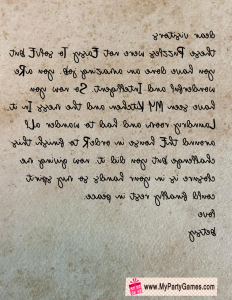 dear visitors
these PuzzLes were not Easy To solvE but
you have done an amazing job. you aRe
wonderful and IntelligenT. So now you
have seen MY KitcheN and the mess In it
Laundry room and had to wander aLl
around thE house in ordeR to finish this
challenge but you did it. now giving me
closure is in your hands so my spirit
could finally rest in peace.
love
Betsy
www.MyPartyGames.com